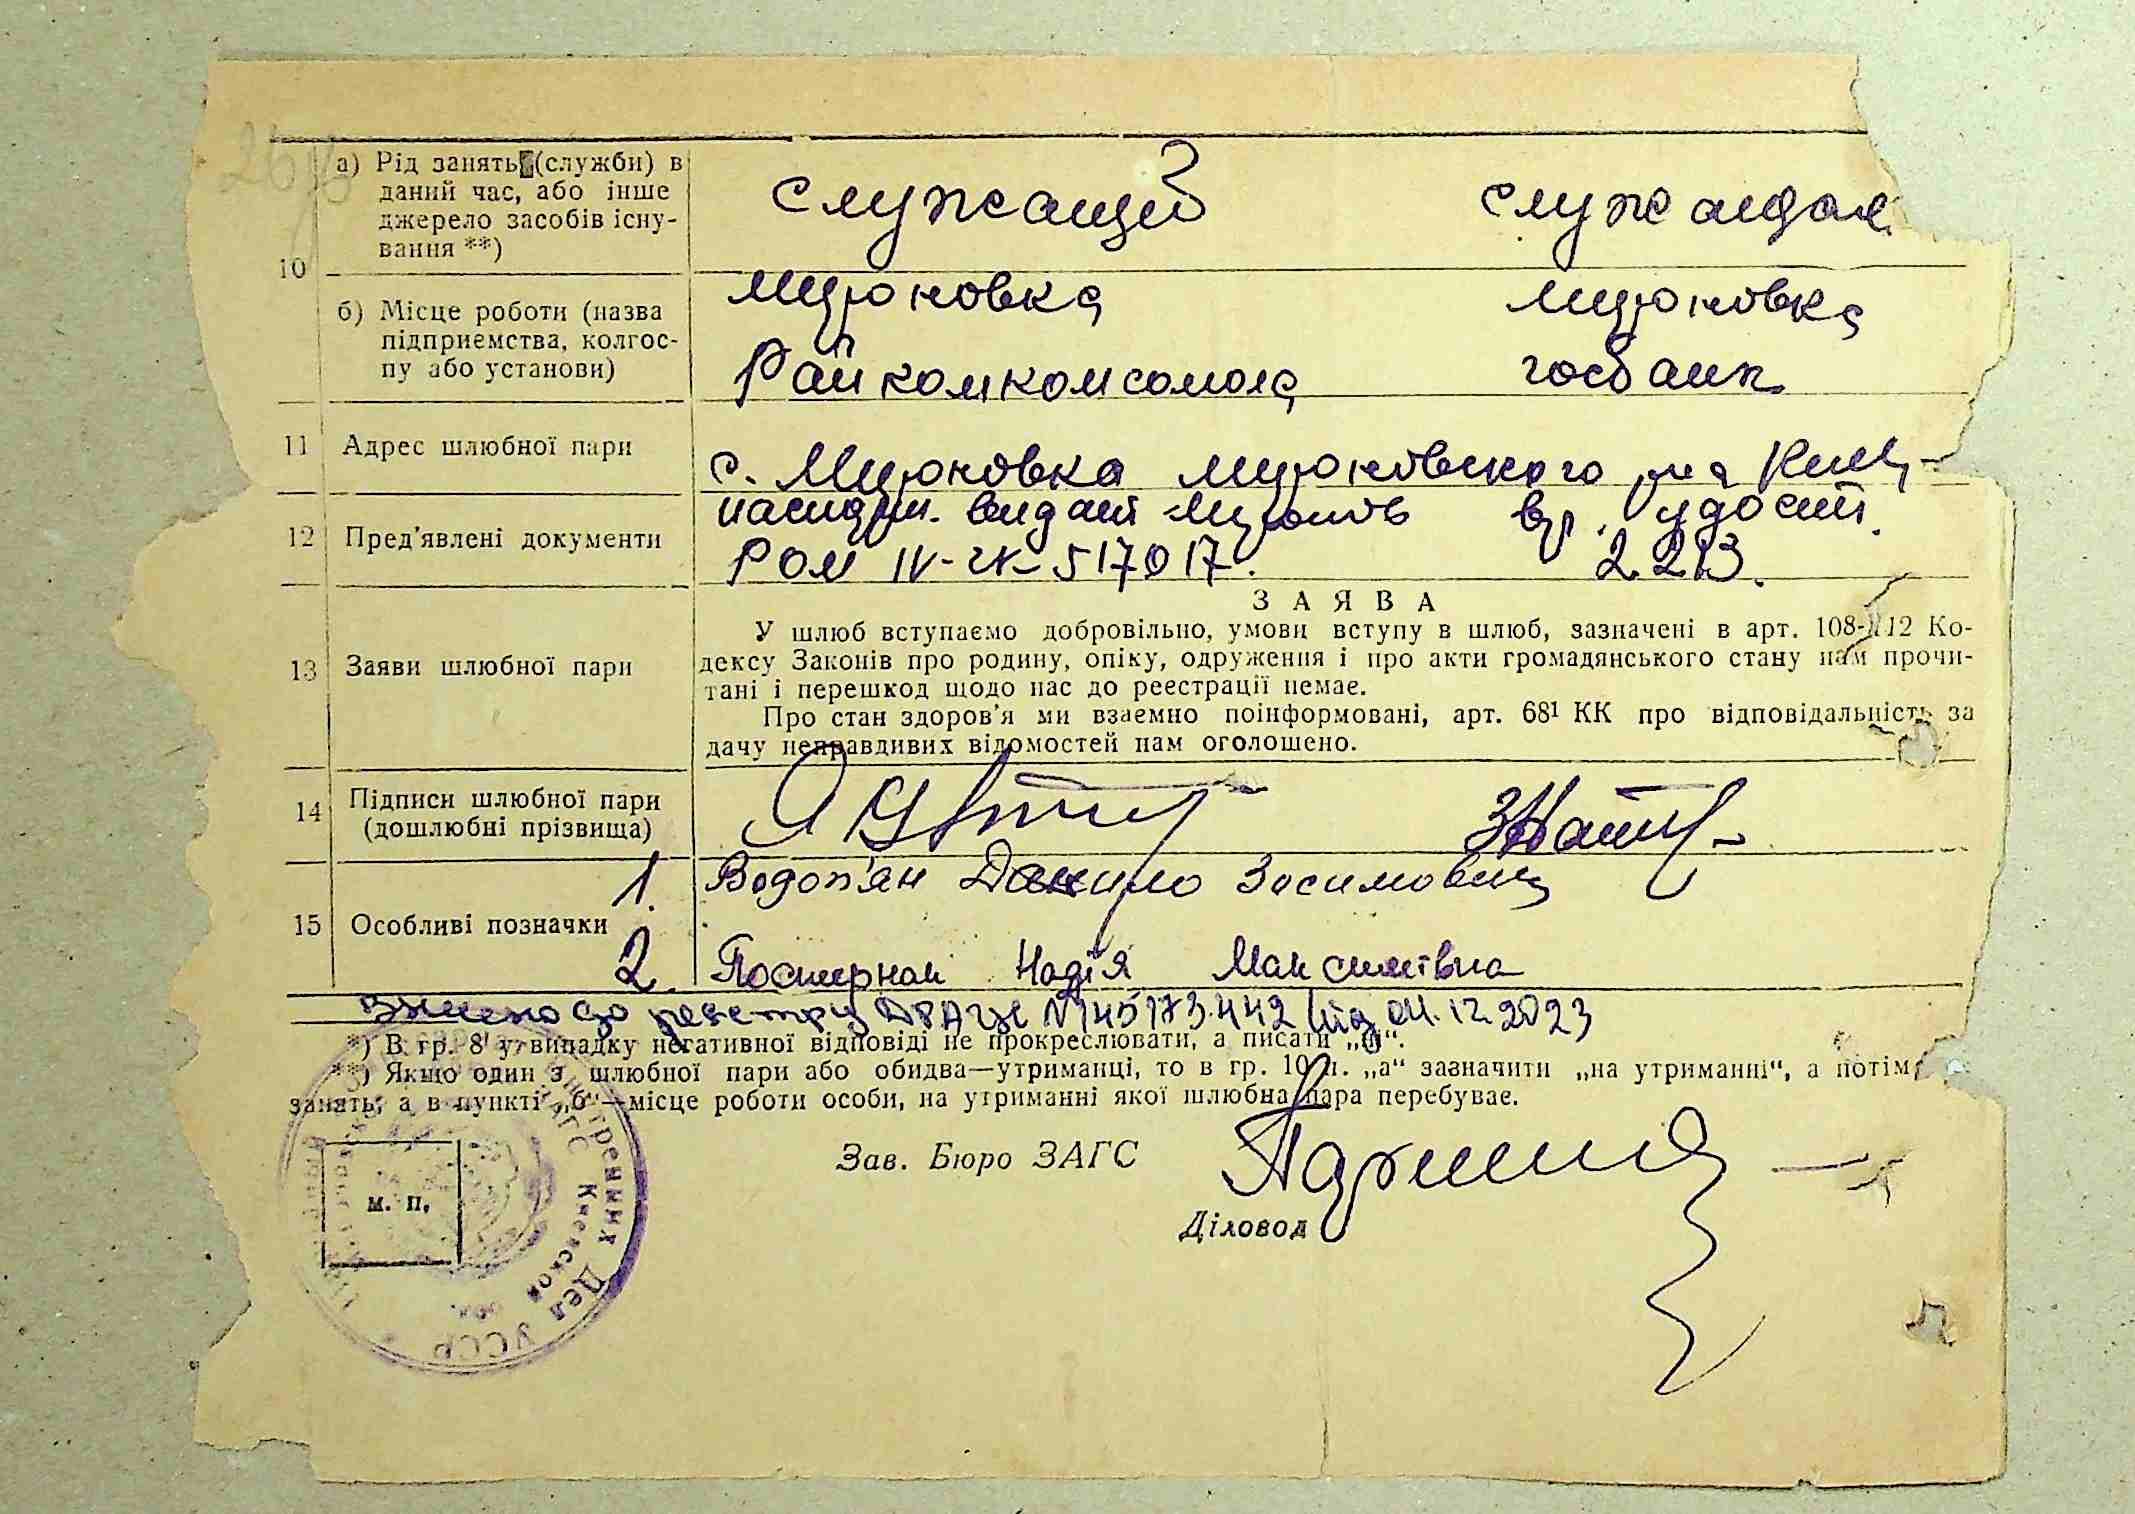 а) Рід занять (служби) в
даний час, або інше
джерело засобів існу-
вання **)
служащий служащая
10
б) Місце роботи (назва
підприємства, колгос-
пу або установи)
Мироновка Мироновка
Райкомкомсомола госбанк
11 Адрес шлюбної пари
с. Мироновка Мироновского р-на Киев-
12 Пред'явлені документи
паспорт. видан Миронов вр. удост.
РОМ IV-ЧК-517017. 2213.
13 Заяви шлюбної пари
ЗАЯВА
У шлюб вступаємо добровільно, умови вступу в шлюб, зазначені в арт. 108-112 Ко-
дексу Законів про родину, опіку, одруження і про акти громадянського стану нам прочи-
тані і перешкод щодо нас до реєстрації немає.
Про стан здоров'я ми взаємно поінформовані, арт. 68¹ КК про відповідальність за
дачу неправдивих відомостей нам оголошено.
14 Підписи шлюбної пари
(дошлюбні прізвища)
15 Особливі позначки
1. Водоп'ян Данило Зосимович
2. Надія Максимівна
Внесено до реєстру ДРАЦС №145173442 від 04.12.2023
*) В гр. 8 у випадку негативної відповіді не прокреслювати, а писати „ні“.
**) Якщо один з шлюбної пари або обидва—утриманці, то в гр. 10 п. „а“ зазначити „на утриманні“, а потім
занять, а в пункті „б“—місце роботи особи, на утриманні якої шлюбна пара перебуває.
Зав. Бюро ЗАГС
Діловод
м. п.
Внутренних Дел УССР
ЗАГС Киевской обл.